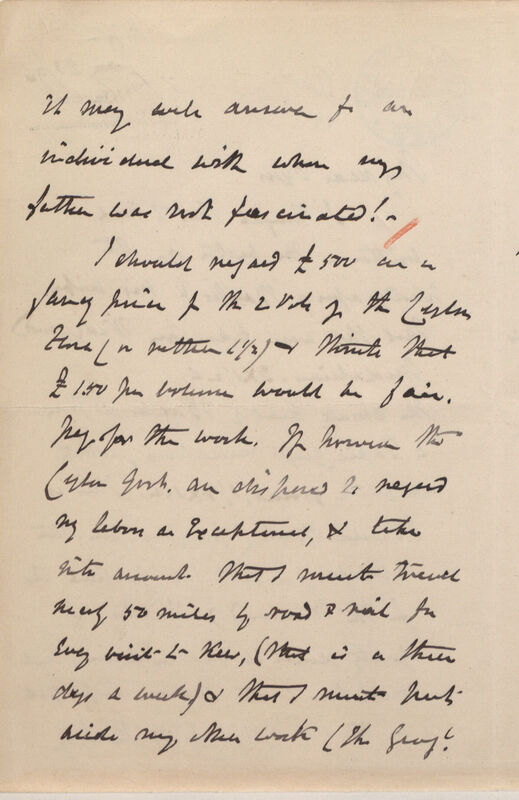 it may well answer for an
individual with whom my
father was not fascinated! –
I should regard £500 as a
fancy price for the 2 Vols of the Ceylon
Flora (or rather 1½) & think that
£150 per volume would be fair
pay for the work. If however the
Ceylon Govt. are disposed to regard
my labor as exceptional, & take
into account that I must travel
nearly 50 miles by road & rail for
every visit to Kew, (that is a three
days a week) & that I must put
aside my other work (the Geog!